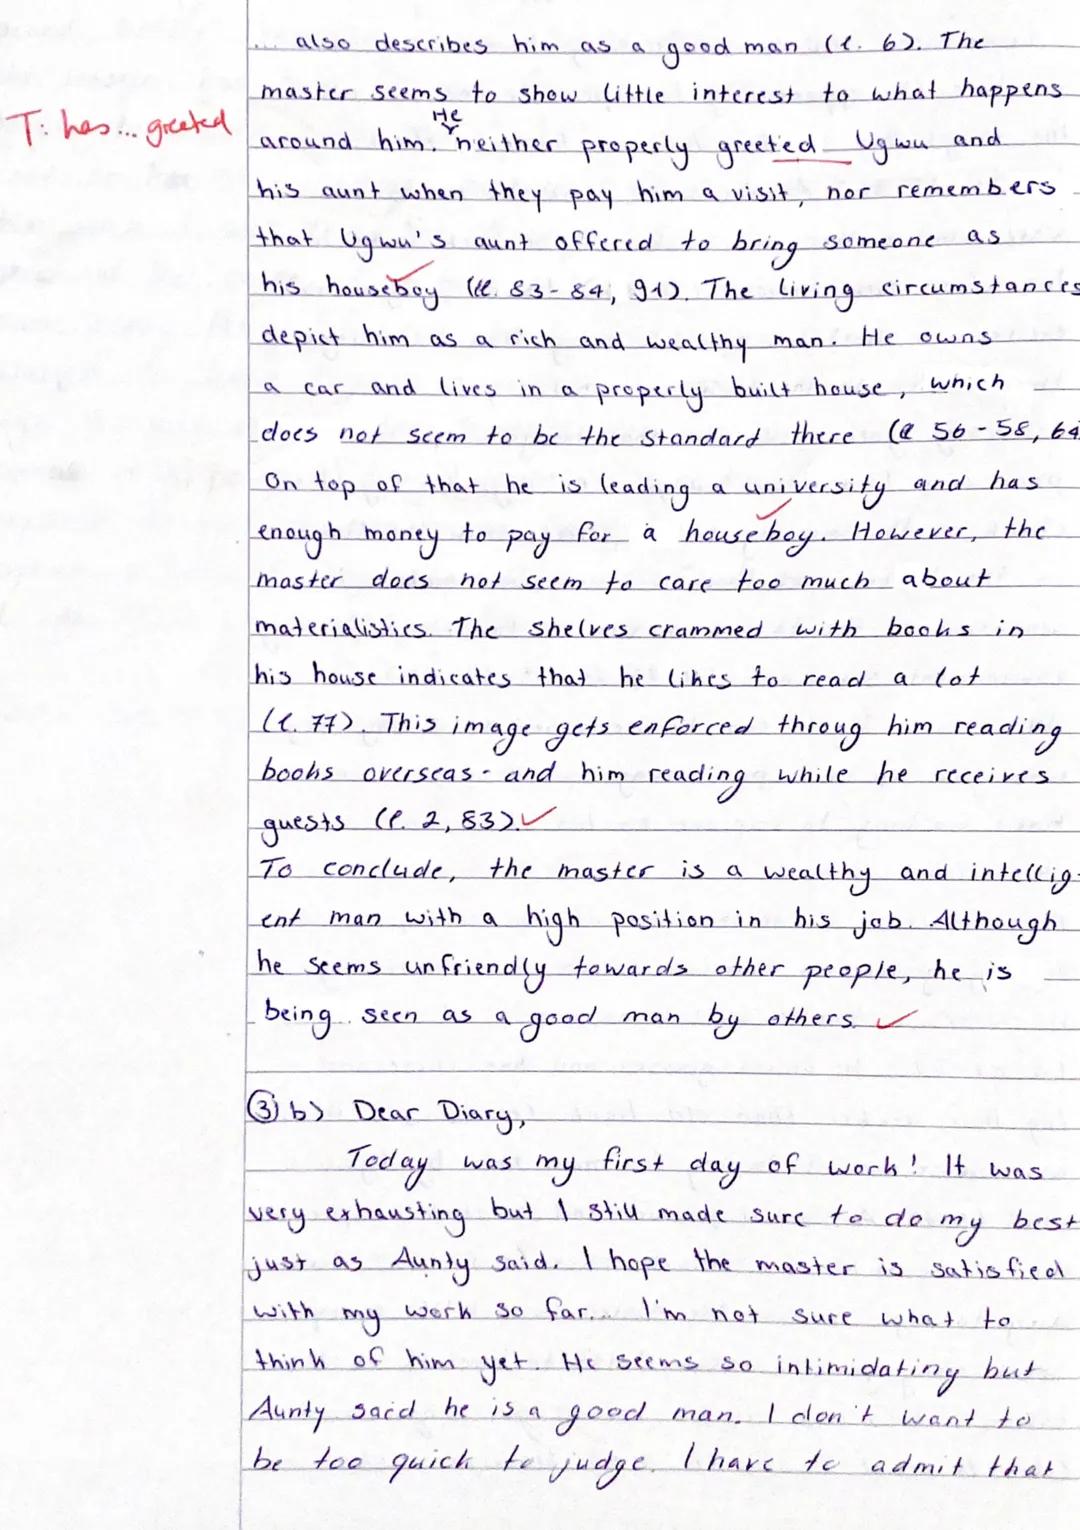 ... also describes him as a good man (l. 6). The
master seems to show little interest to what happens
He
T: has... greeted
around him. neither properly greeted Ugwu and
his aunt when they pay him a visit, nor remembers
that Ugwu's aunt offered to bring someone as
his houseboy (ll. 83-84, 91). The living circumstances
depict him as a rich and wealthy man. He owns
a car and lives in a properly built house, which
does not seem to be the standard there (ll 56-58, 64
On top of that he is leading a university and has
enough money to pay for a houseboy. However, the
master does not seem to care too much about
materialistics. The shelves crammed with books in
his house indicates that he likes to read a lot
(l. 77). This image gets enforced throug him reading
books overseas - and him reading while he receives
guests (l. 2, 83).
To conclude, the master is a wealthy and intellig-
ent man with a high position in his job. Although
he seems unfriendly towards other people, he is
being seen as a good man by others.
3) b) Dear Diary,
Today was my first day of work! It was
very exhausting but I still made sure to do my best
just as Aunty said. I hope the master is satisfied
with my work so far... I'm not sure what to
think of him yet. He seems so intimidating but
Aunty said he is a good man. I don't want to
be too quick to judge. I have to admit that